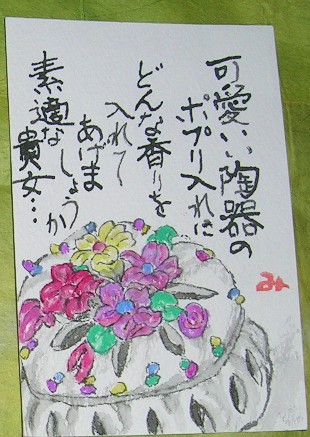 可愛いい陶器の
ポプリ入れに
どんな香りを
入れて
あげま
しょうか
素適な
貴女…
み